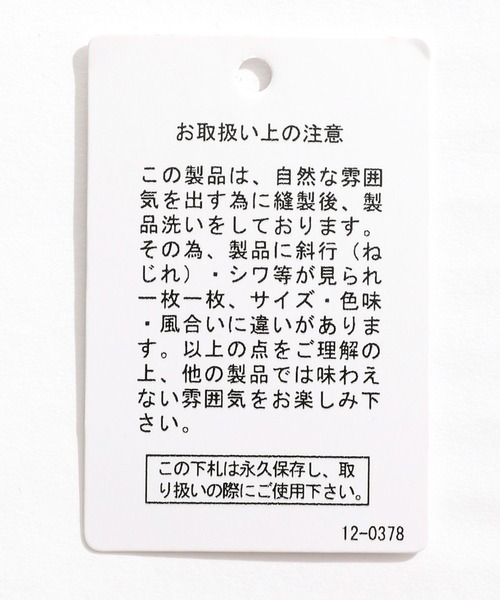 お取扱い上の注意
この製品は、自然な雰囲
気を出す為に縫製後、製
品洗いをしております。
その為、製品に斜行（ね
じれ）・シワ等が見られ
一枚一枚、サイズ・色味
・風合いに違いがありま
す。以上の点をご理解の
上、他の製品では味わえ
ない雰囲気をお楽しみ下
さい。
この下札は永久保存し、取
り扱いの際にご使用下さい。
12-0378